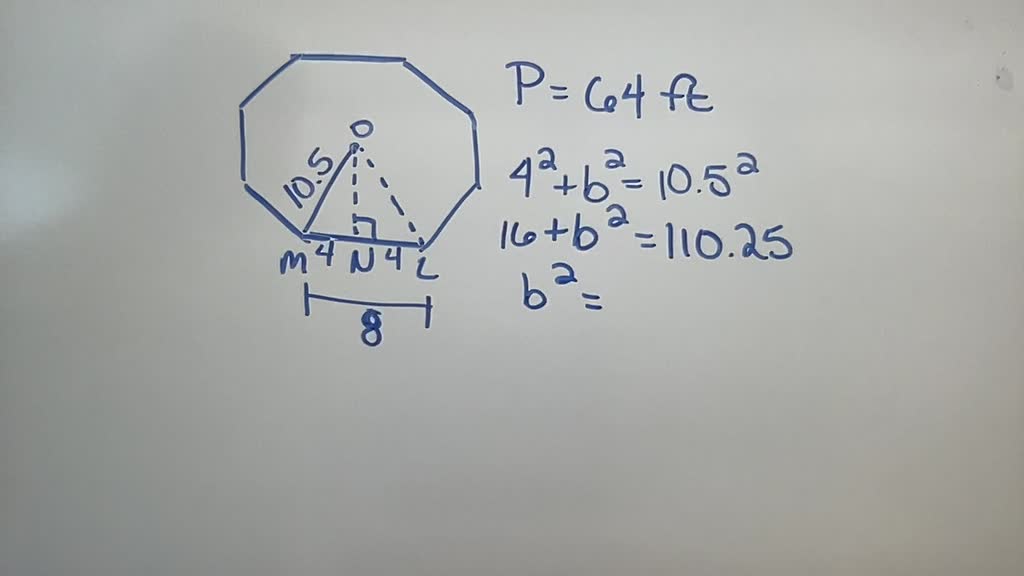 O
10.5
M 4 N 4 L
8
P = 64 ft
4² + b² = 10.5²
16 + b² = 110.25
b² =